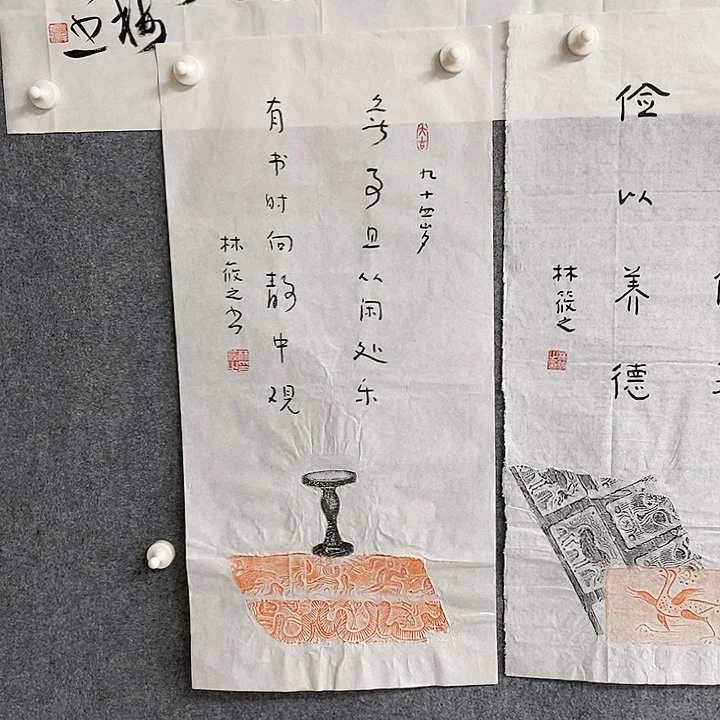 大吉
九十四岁
无事且从闲处乐
有书时向静中观
林筱之书
俭以养德
林筱之
梅